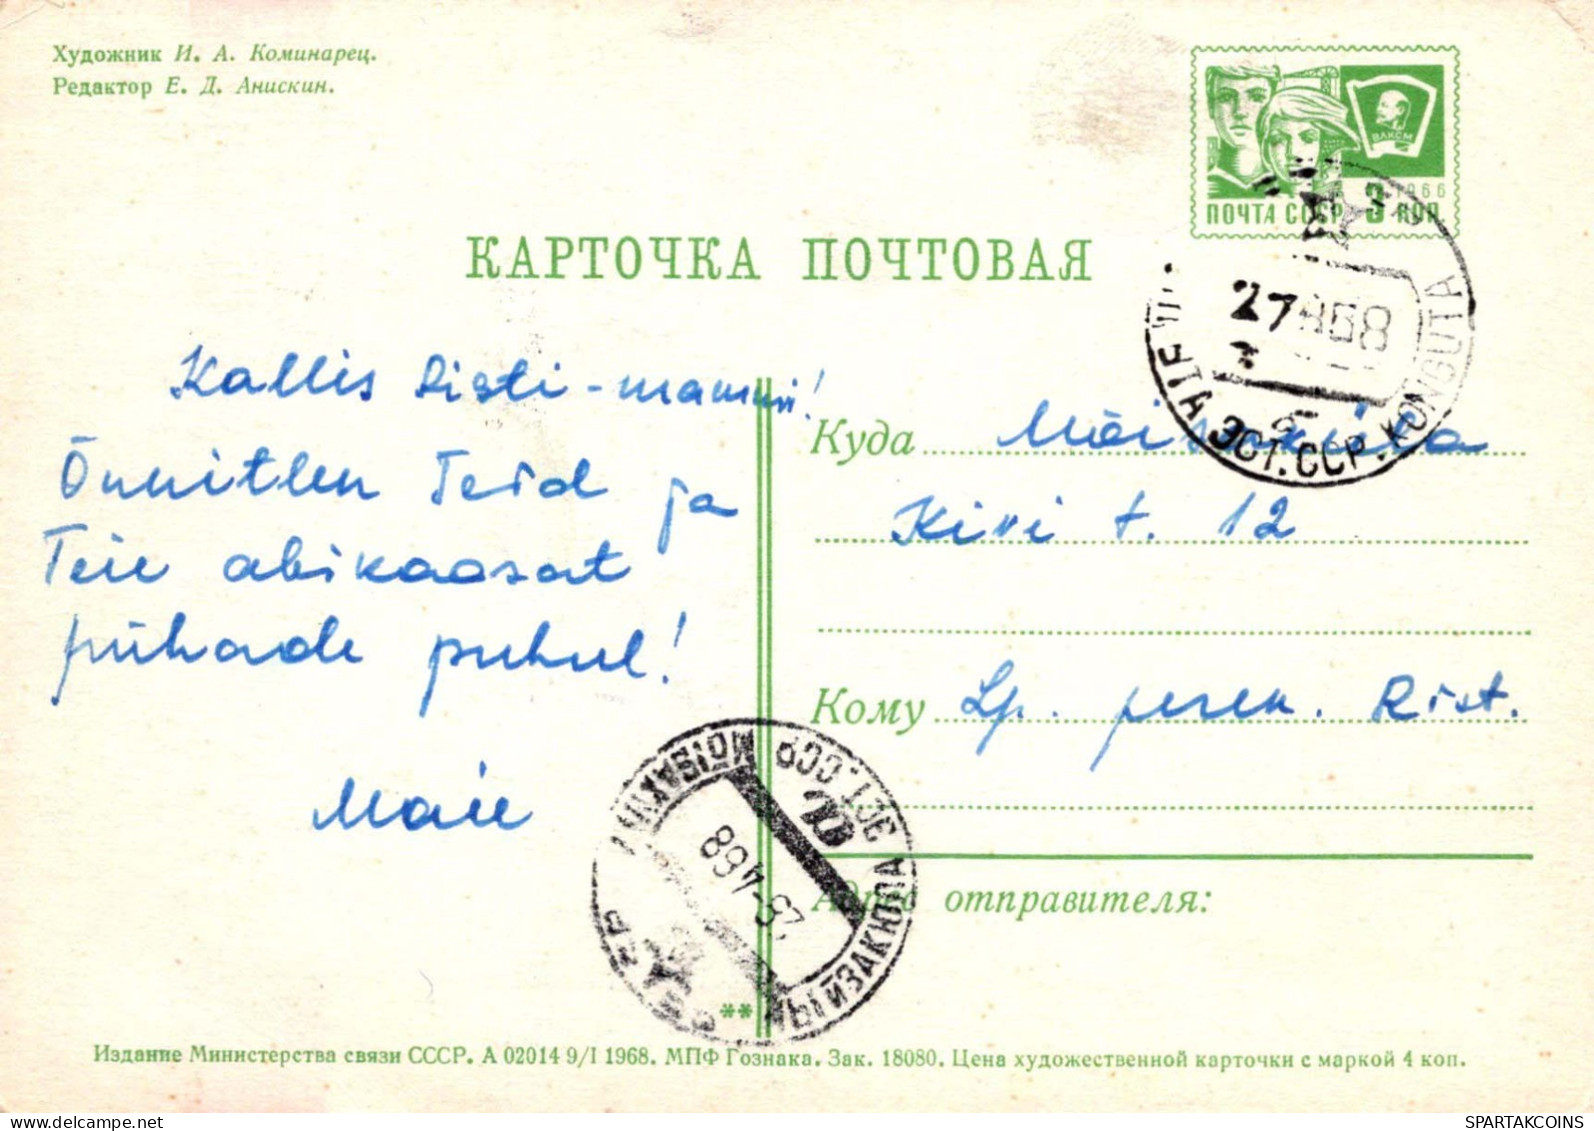 Художник И. А. Коминарец.
Редактор Е. Д. Анискин.
ВЛКСМ
1966
ПОЧТА СССР 3 КОП.
КАРТОЧКА ПОЧТОВАЯ
27 68
ЭСТ.ССР. KONGUTA
Kallis Risti-mamni!
Õnnitlen Teid ja
Teie abikaasat
pühade puhul!
Maie
Куда Mõisaküla
Kivi t. 12
Кому Lp. peren. Rist.
Адрес отправителя:
ЭСТ.ССР MÕISAKÜLA
-4 68
МЫЙЗАКЮЛА
**
Издание Министерства связи СССР. А 02014 9/I 1968. МПФ Гознака. Зак. 18080. Цена художественной карточки с маркой 4 коп.
SPARTAKCOINS